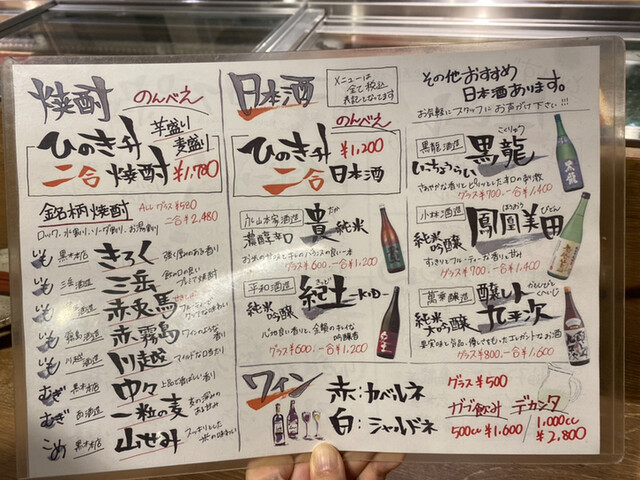 焼酎
のんべえ
ひのき升
二合焼酎
芋盛り
麦盛り
¥1,780
銘柄焼酎
ALL グラス ¥580
二合 ¥2,480
ロック、水割り、ソーダ割り、お湯割り
いも 黒木本店 きろく
いも 三岳酒造 三岳
いも 酒造 赤兎馬
いも 霧島酒造 赤霧島
いも 川越酒造 川越
むぎ 黒木本店 中々
上品で香ばしい香り
むぎ 西酒造 一粒の麦
こめ 黒木本店 山せみ
日本酒
メニューは
全て税込
表記となってます
のんべえ
ひのき升
二合日本酒
¥1,200
永山本家酒造
濃醇辛口
貴
たか
純米
グラス ¥600. 一合 ¥1,200
平和酒造
純米
吟醸
紀土 -KID-
きっど
グラス ¥600. 一合 ¥1,200
その他おすすめ
日本酒あります。
お気軽にスタッフにお声がけ下さい!!!
黒龍酒造
いっちょうらい
黒龍
こくりゅう
グラス ¥700. 一合 ¥1,400
小林酒造
純米
吟醸
鳳凰美田
ほうおう
びでん
グラス ¥700. 一合 ¥1,400
萬乗醸造
純米
大吟醸
醸し人
九平次
かもしびと
くへいじ
グラス ¥800. 一合 ¥1,600
ワイン
赤:カベルネ
白:シャルドネ
グラス ¥500
ガブ飲み デカンタ
500cc ¥1,600
1,000cc
¥2,800